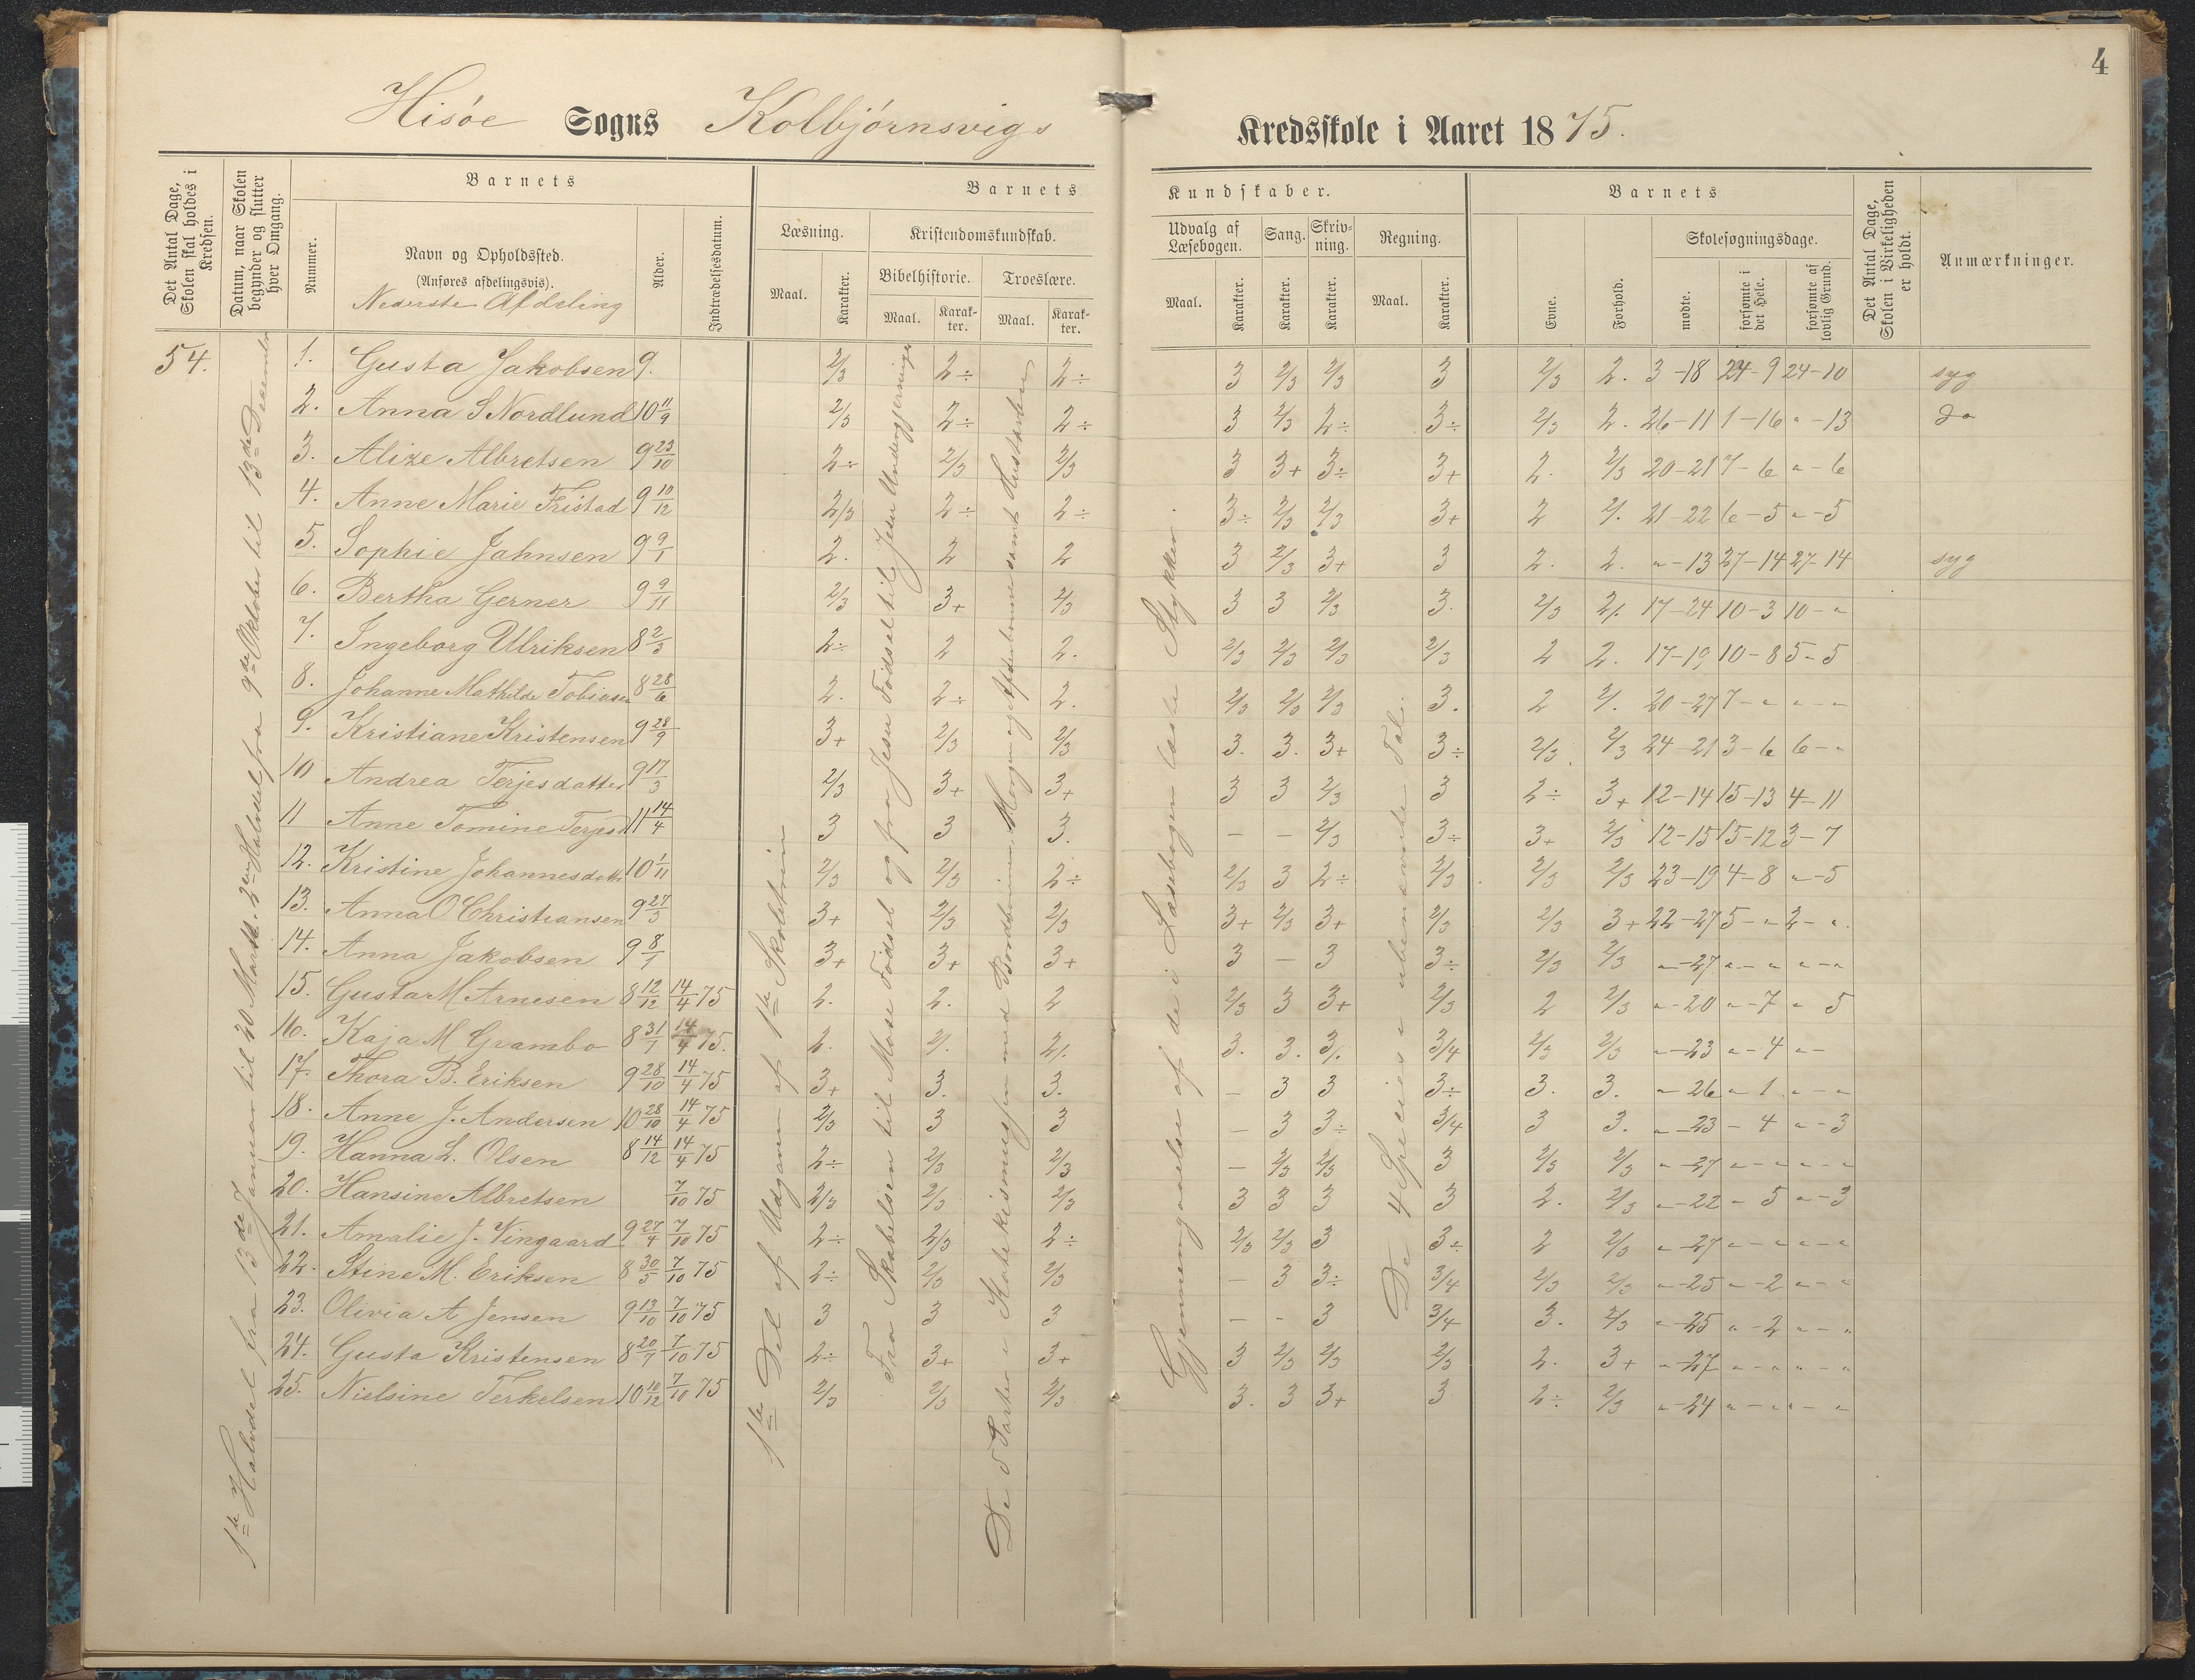 4
Hisöe Sogns Kolbjörnsvigs Kredsskole i Aaret 1875.
Det Antal Dage, Skolen skal holdes i Kredsen.
Datum, naar Skolen begynder og slutter hver Omgang.
Barnets
Nummer.
Navn og Opholdssted.
(Anføres afdelingsvis).
Nederste Afdeling
Alder.
Indtrædelsesdatum.
Barnets Kundskaber.
Læsning.
Maal.
Karakter.
Kristendomskundskab.
Bibelhistorie.
Maal.
Karakter.
Troeslære.
Maal.
Karakter.
Udvalg af Læsebogen.
Maal.
Karakter.
Sang.
Karakter.
Skrivning.
Karakter.
Regning.
Maal.
Karakter.
Barnets
Evne.
Forhold.
Skolesøgningsdage.
mødte.
forsømte i det Hele.
forsømte af lovlig Grund.
Det Antal Dage, Skolen i Virkeligheden er holdt.
Anmærkninger.
54.
1ste Halvdel fra 13de Januar til 20 Marts. 2den Halvdel fra 9de Oktober til 13de December
1ste Del af Udgaven af 1ste Skoletrin
Fra Skabelsen til Mose Födsel og fra Jesu Födsel til Jesu Undergjerninger
De 5 Parter i Katekismusen med Bordbönnen, Morgen og Aftenbönnen samt Hustavlen
Gjennemgaaelse af de i Læsebogen læste Stykker.
De 4 Species i ubenævnte Tal.
1. Gusta Jakobsen 9. 2/3 2÷ 2÷ 3 2/3 2/3 3 2/3 2. 3-18 24-9 24-10 syg
2. Anna S Nordlund 10 11/9 2/3 2÷ 2÷ 3 2/3 2÷ 3÷ 2/3 2. 26-11 1-16 "-13 do
3. Alize Albretsen 9 23/10 2÷ 2/3 2/3 3 3+ 3÷ 3+ 2. 2/3 20-21 7-6 "-6
4. Anne Marie Fristad 9 10/12 2/3 2÷ 2÷ 3÷ 2/3 2/3 3+ 2 2. 21-22 6-5 "-5
5. Sophie Jahnsen 9 9/1 2. 2 2 3 2/3 3+ 3 2. 2. "-13 27-14 27-14 syg
6. Bertha Gerner 9 9/11 2/3 3+ 2/3 3 3 2/3 3. 2/3 2. 17-24 10-3 10-"
7. Ingeborg Ulriksen 8 2/3 2÷ 2 2. 2/3 2/3 2/3 2/3 2 2. 17-19 10-8 5-5
8. Johanne Mathilde Tobiasen 8 28/6 2. 2÷ 2. 2/3 2/3 2/3 3. 2 2. 20-27 7-" "-"
9. Kristiane Kristensen 9 28/9 3+ 2/3 2/3 3. 3. 3+ 3÷ 2/3 2/3 24-21 3-6 6-"
10 Andrea Terjesdatter 9 17/3 2/3 3+ 3+ 3 3 2/3 3 2÷ 3+ 12-14 15-13 4-11
11 Anne Tomine Terjesd 11 14/4 3 3 3. - - 2/3 3÷ 3+ 2/3 12-15 15-12 3-7
12. Kristine Johannesdatt 10 1/11 2/3 2/3 2÷ 2/3 3 2÷ 2/3 2/3 2/3 23-19 4-8 "-5
13. Anna O Christiansen 9 27/3 3+ 2/3 2/3 3+ 2/3 3+ 2/3 2/3 3+ 22-27 5-" 2-"
14. Anna Jakobsen 9 8/1 3+ 3+ 3+ 3 - 3 3÷ 2/3 2/3 "-27 "-" "-"
15. Gustar M Arnesen 8 12/12 14/4 75 2. 2. 2 2/3 3 3+ 2/3 2 2/3 "-20 "-7 " 5
16. Kaja M Grambo 8 31/1 14/4 75. 2. 2. 2. 3. 3. 3. 3/4 2/3 2/3 "-23 "-4 "-
17. Thora B. Eriksen 9 28/10 14/4 75 3+ 3. 3. - 3 3 3÷ 3. 3. "-26 "-1 "-"
18. Anne J. Andersen 10 28/10 14/4 75 2/3 3 3 - 3 3÷ 3/4 3 3. "-23 -4 "-3
19. Hanna L. Olsen 8 14/12 14/4 75 2÷ 2/3 2/3 - 2/3 2/3 3 2/3 2/3 "-27 "-" "-"
20. Hansine Albretsen 7/10 75 2/3 2/3 2/3 3 3 3 3 2. 2/3 "-22 "-5 "-3
21. Amalie J. Vingaard 9 27/4 7/10 75 2÷ 2/3 2÷ 2/3 2/3 3 3÷ 2 2/3 "-27 "-" "-"
22. Stine M. Eriksen 8 30/5 7/10 75 2÷ 2/3 2/3 - 3 3÷ 3/4 2/3 2/3 "-25 "-2 "-"
23. Olivia A Jensen 9 13/10 7/10 75 3 3 3 - - 3 3/4 3. 2/3 "-25 "-2 "-"
24. Gusta Kristensen 8 20/7 7/10 75 2÷ 3+ 3+ 3 2/3 2/3 2/3 2. 3+ "-27 "-" "-"
25. Nielsine Terkelsen 10 10/12 7/10 75 2/3 2/3 2/3 3. 3 3+ 3 2÷ 2/3 "-24 "-" "-"